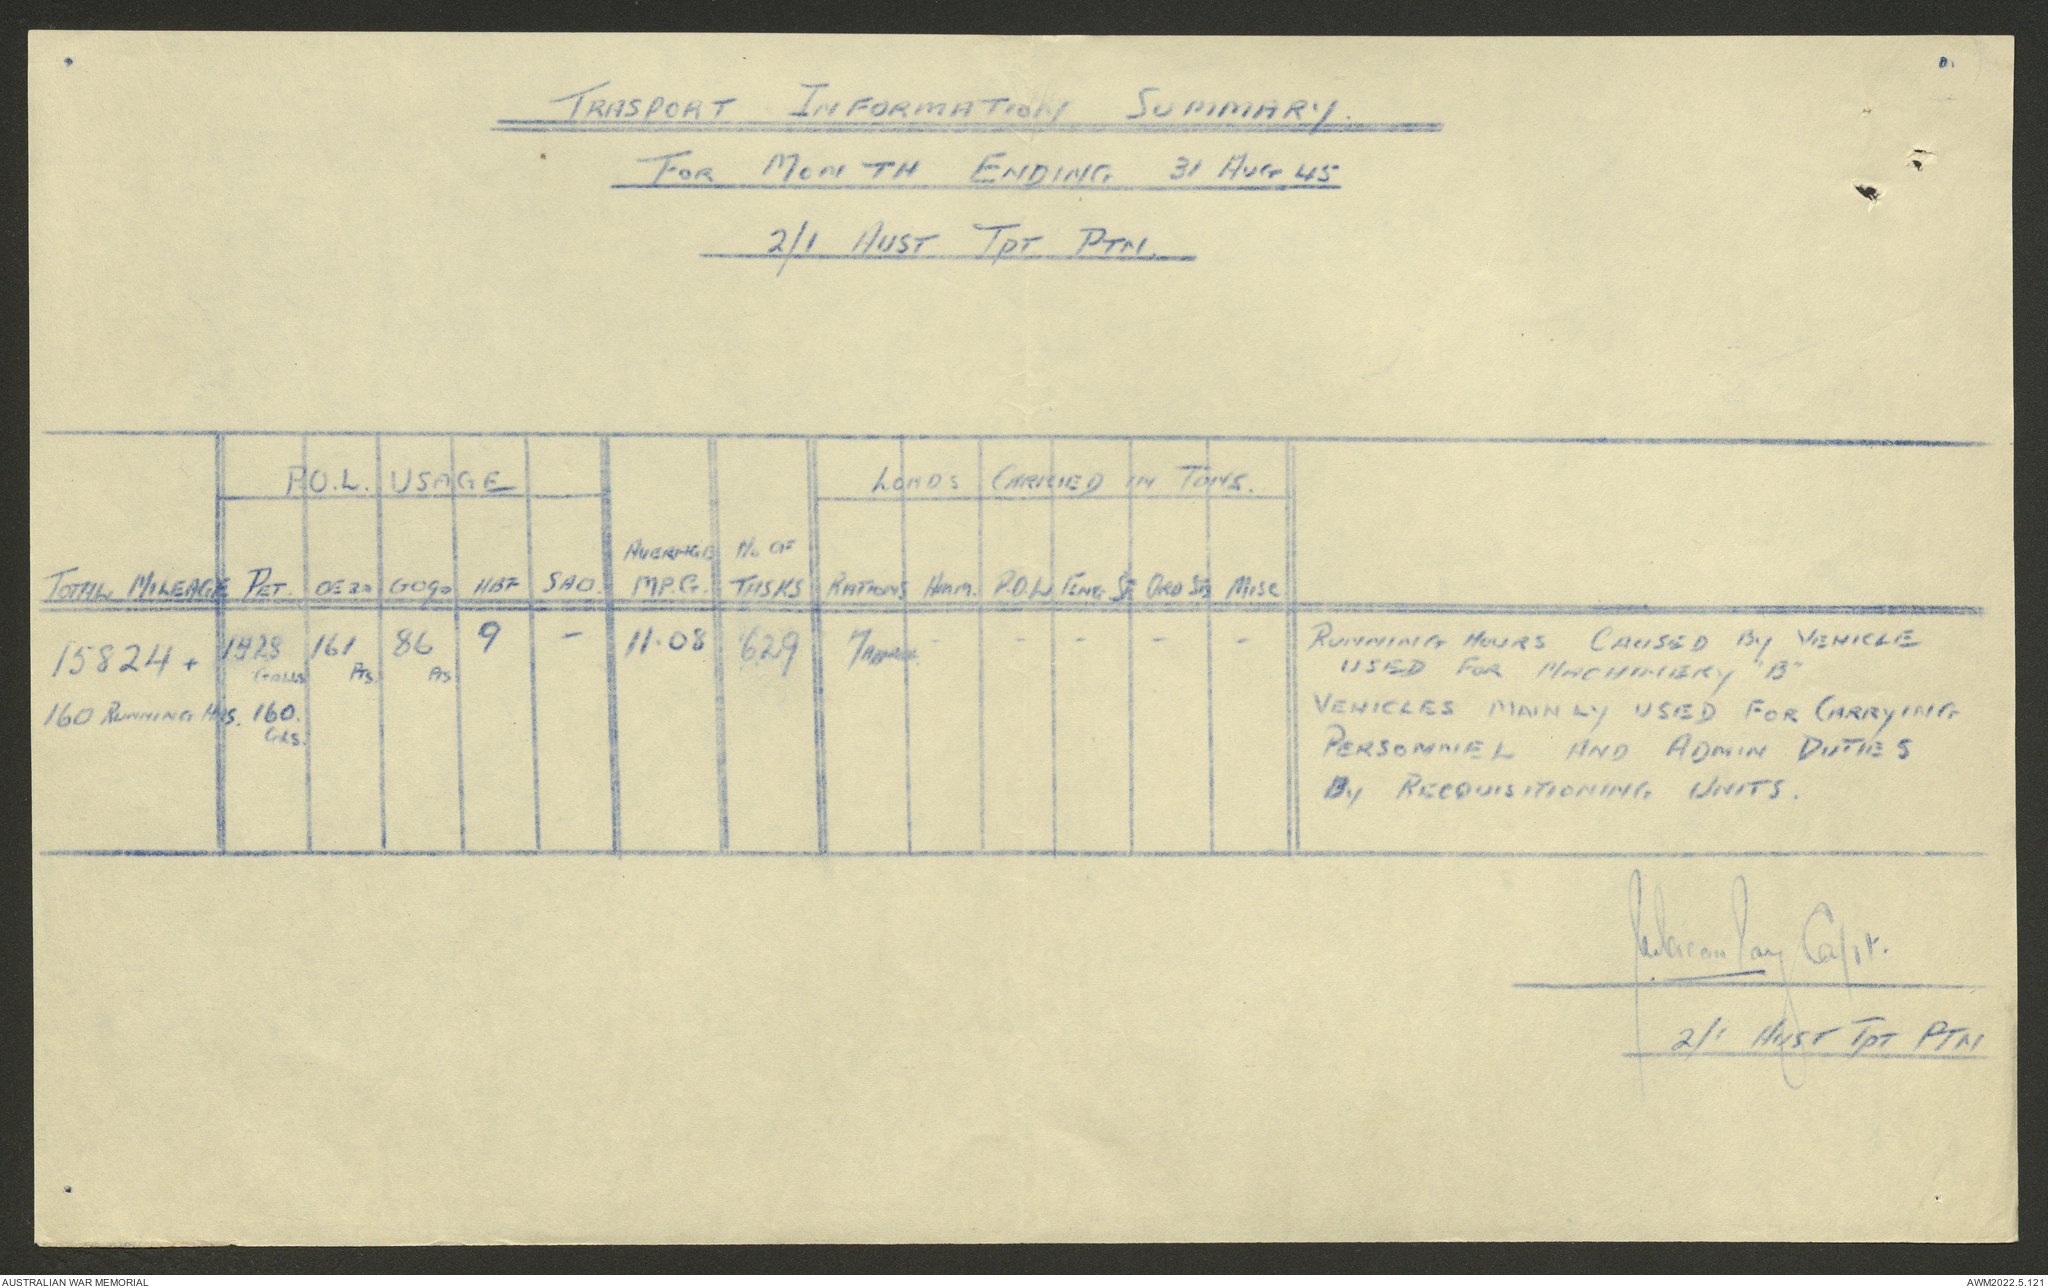 TRASPORT INFORMATION SUMMARY.
FOR MONTH ENDING 31 AUG 45
2/1 AUST TPT PTN.
P.O.L. USAGE
LOADS CARRIED IN TONS.
AVERAGE No OF
TOTAL MILEAGE PET. OE30 GO90 HBF SAO. M.P.G. TASKS RATIONS AMM. P.O.L ENG. ST ORD STS MISC
15824 + 1428 161 86 9 - 11.08 629 7 APPROX - - - - - RUNNING HOURS CAUSED BY VEHICLE
GALLS PTS PTS USED FOR MACHINERY "B"
160 RUNNING HRS. 160. VEHICLES MAINLY USED FOR CARRYING
GLS. PERSONNEL AND ADMIN DUTIES
BY REQUISITIONING UNITS.
Capt.
2/1 AUST TPT PTN
AUSTRALIAN WAR MEMORIAL
AWM2022.5.121